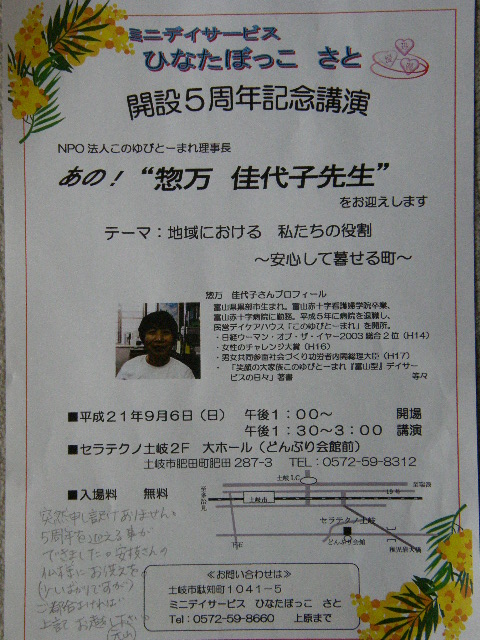 ミニデイサービス
ひなたぼっこ さと
開設5周年記念講演
NPO法人このゆびとーまれ理事長
あの! “惣万 佳代子先生”
をお迎えします
テーマ:地域における 私たちの役割
~安心して暮せる町~
惣万 佳代子さんプロフィール
富山県黒部市生まれ。富山赤十字看護婦学院卒業、
富山赤十字病院に勤務。平成5年に病院を退職し、
民営デイケアハウス「このゆびとーまれ」を開所。
・日経ウーマン・オブ・ザ・イヤー2003総合2位(H14)
・女性のチャレンジ大賞(H16)
・男女共同参画社会づくり功労者内閣総理大臣(H17)
・「笑顔の大家族このゆびとーまれ『富山型』デイサー
ビスの日々」著書 等々
■平成21年9月6日(日) 午後1:00~ 開場
午後1:30~3:00 講演
■セラテクノ土岐2F 大ホール(どんぶり会館前)
土岐市肥田町肥田287-3 TEL:0572-59-8312
■入場料 無料
土岐I.C
至多治見
土岐市
19号
至瑞浪
セラテクノ土岐
どんぶり会館
突然申し訳けありません。
5周年を迎える事が
できました。
≪お問い合わせは≫
土岐市駄知町1041-5
ミニデイサービス ひなたぼっこ さと
Tel:0572-59-8660 上原まで